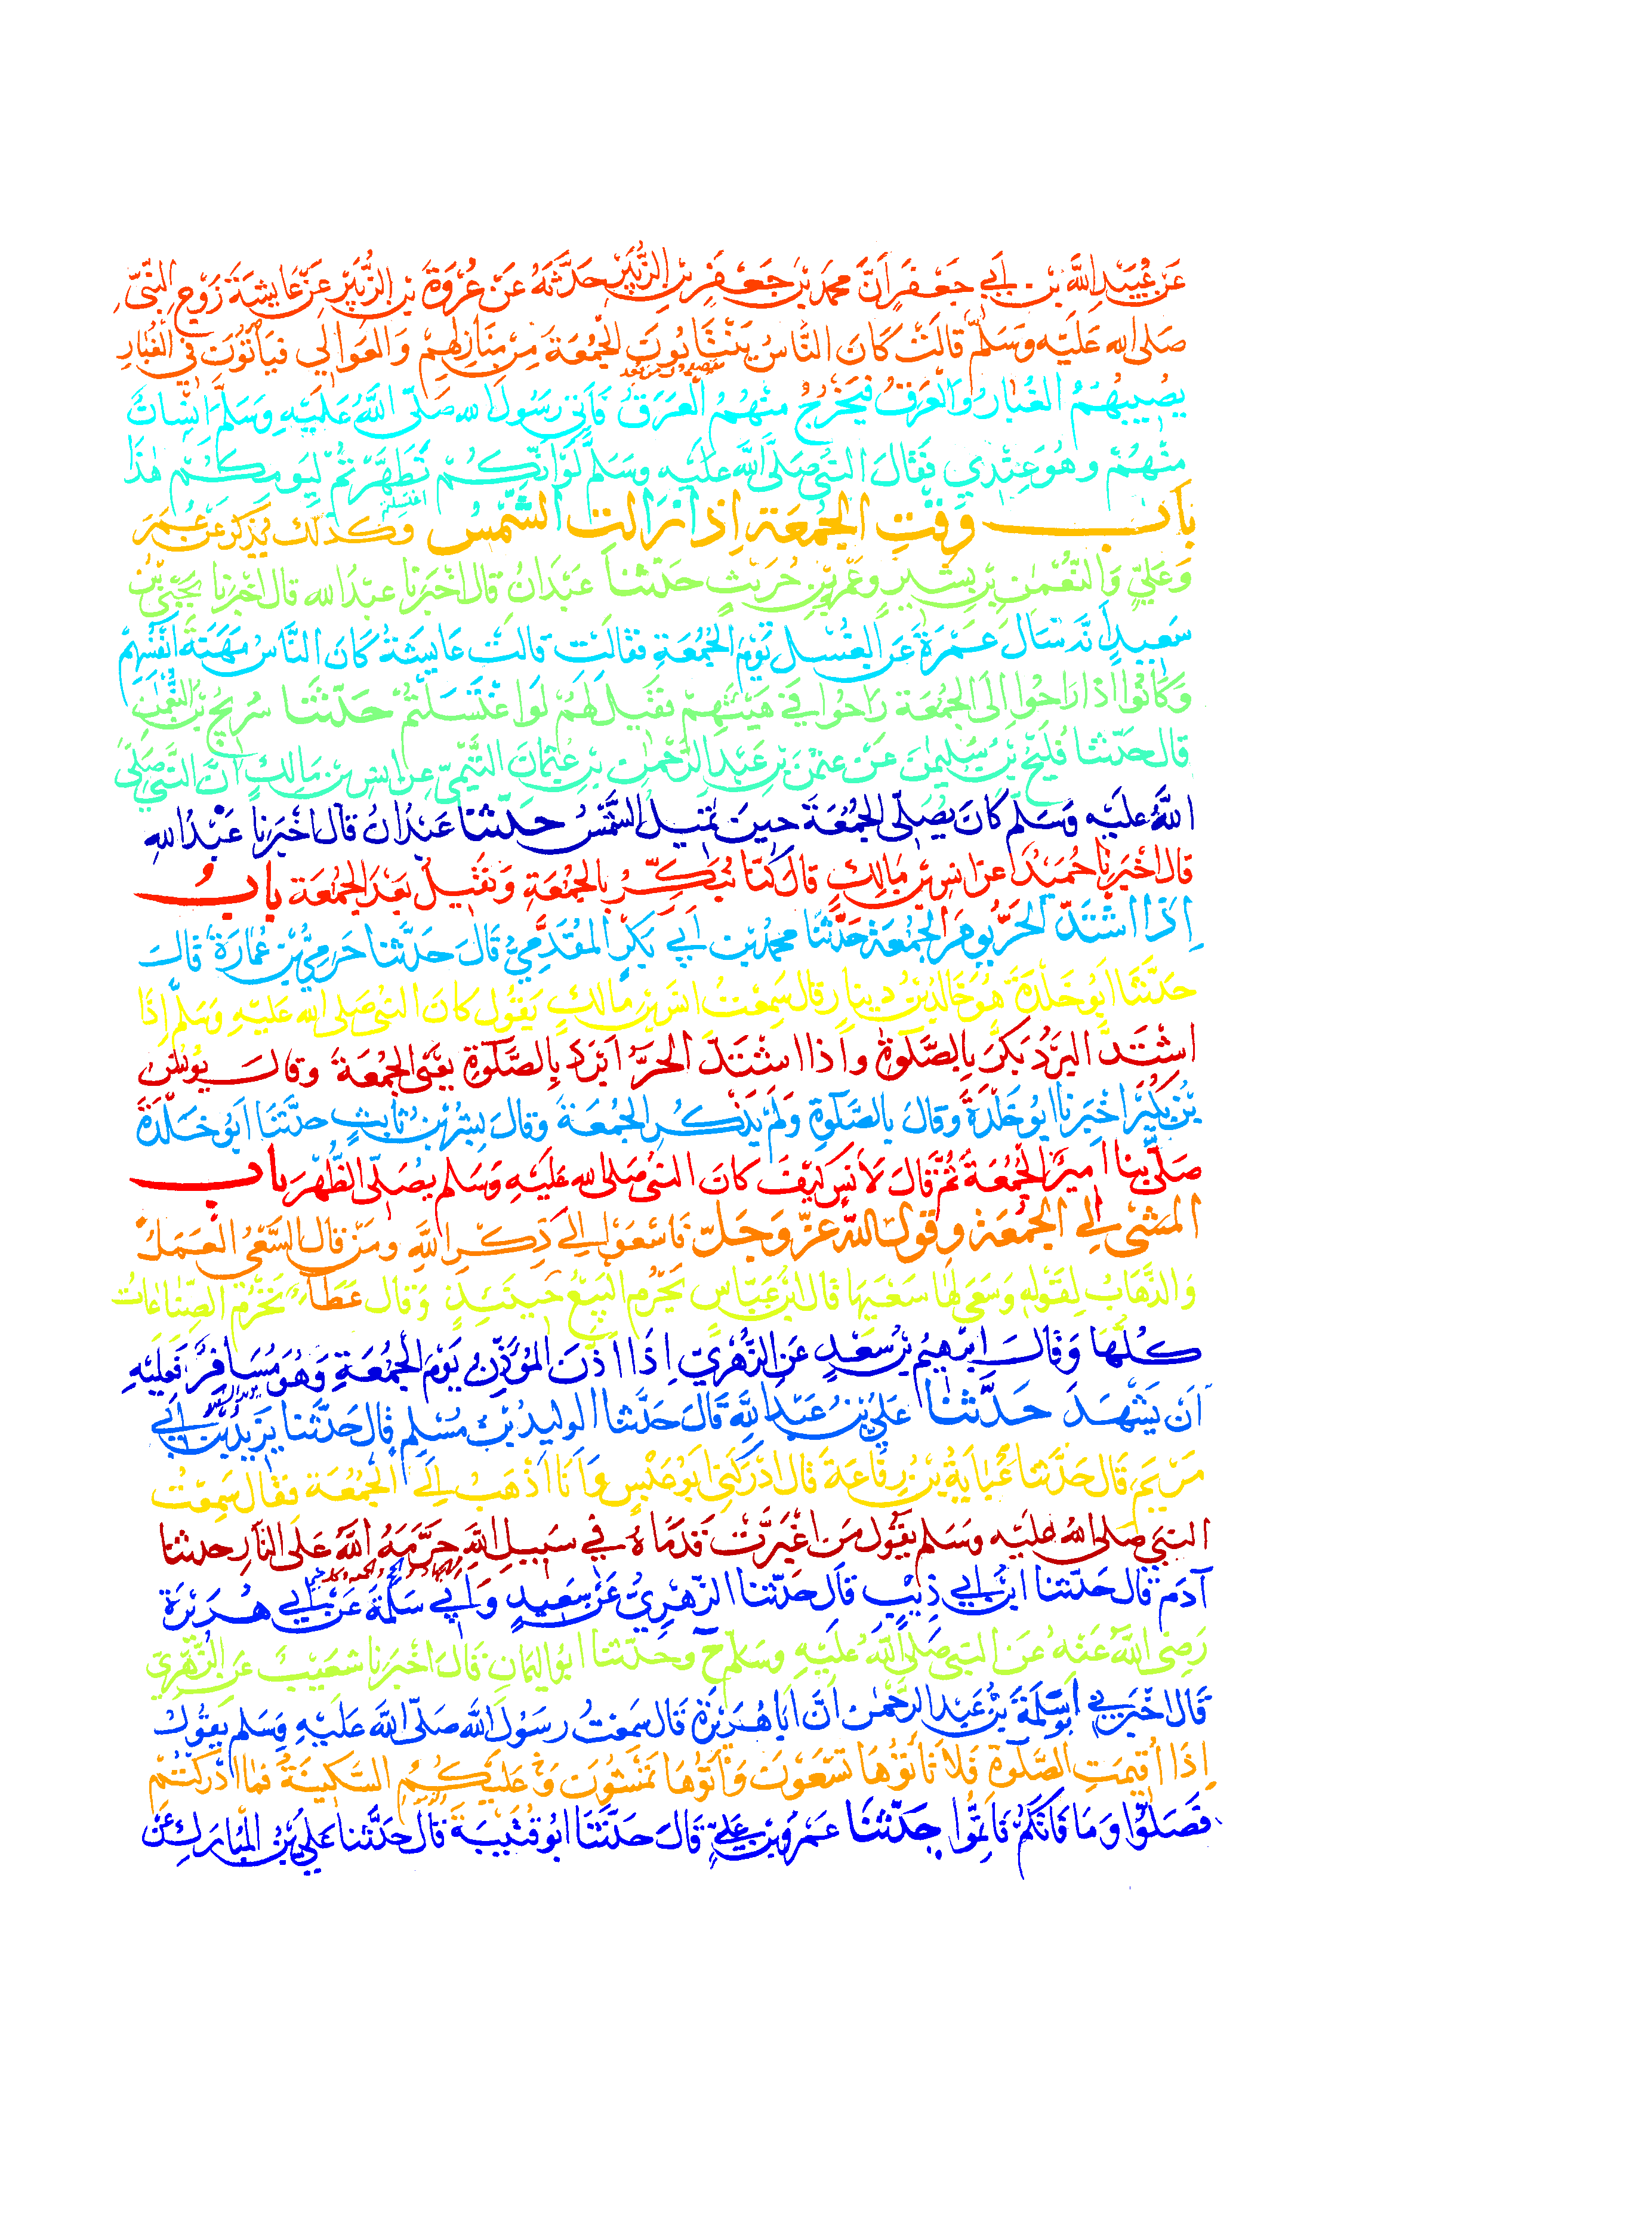 عَنْ عُبَيْدِ اللَّهِ بْنِ أَبِي جَعْفَرٍ أَنَّ مُحَمَّدَ بْنَ جَعْفَرِ بْنِ الزُّبَيْرِ حَدَّثَهُ عَنْ عُرْوَةَ بْنِ الزُّبَيْرِ عَنْ عَايِشَةَ زَوْجِ النَّبِيِّ
صَلى الله عَلَيْهِ وَسَلَّمَ قَالَتْ كَانَ النَّاسُ يَنْتَابُونَ الْجُمُعَةَ مِنْ مَنَازِلِهِمْ وَالعَوَالِي فَيَأْتُونَ فِي الْغُبَارِ
يُصِيبُهُمُ الغُبَارُ وَالْعَرَقُ فَيَخْرُجُ مِنْهُمُ الْعَرَقُ فَأَتى رَسُولَ الله صَلَّى اللَّهُ عَلَيْهِ وَسَلَّمَ إِنْسَانٌ
مِنْهُمْ وَهُوَ عِنْدِي فَقَالَ النَّبِيُّ صَلَّى اللَّهُ عَلَيْهِ وَسَلَّمَ لَوْ أَنَّكُمْ تَطَهَّرْتُمْ لِيَوْمِكُمْ هٰذَا
بَابُ وَقْتِ الْجُمُعَةِ إِذَا زَالَتِ الشَّمْسُ وَكَذٰلِكَ يُذْكَرُ عَنْ عُمَرَ
وَعَلِيٍّ وَالنُّعْمٰنِ بْنِ بَشِيرٍ وَعَمْرِو بْنِ حُرَيْثٍ حَدَّثَنَا عَبْدَانُ قَالَ أَخْبَرَنَا عَبْدُ الله قَالَ أَخْبَرَنَا يَحْيَى بْنُ
سَعِيدٍ أَنَّهُ سَأَلَ عَمْرَةَ عَنِ الْغُسْلِ يَوْمَ الْجُمُعَةِ فَقَالَتْ قَالَتْ عَايِشَةُ كَانَ النَّاسُ مَهَنَةَ أَنْفُسِهِمْ
وَكَانُوا إِذَا رَاحُوا إِلَى الْجُمُعَةِ رَاحُوا فِي هَيْئَتِهِمْ فَقِيلَ لَهُمْ لَوِ اغْتَسَلْتُمْ حَدَّثَنَا سُرَيْجُ بْنُ النُّعْمٰنِ
قَالَ حَدَّثَنَا فُلَيْحُ بْنُ سُلَيْمٰنَ عَنْ عُثْمٰنَ بْنِ عَبْدِ الرَّحْمٰنِ بْنِ عُثْمَانَ التَّيْمِيِّ عَنْ أَنَسِ بْنِ مَالِكٍ أَنَّ النَّبِيَّ صَلَّى
اللَّهُ عَلَيْهِ وَسَلَّمَ كَانَ يُصَلِّي الْجُمُعَةَ حِينَ تَمِيلُ الشَّمْسُ حَدَّثَنَا عَبْدَانُ قَالَ أَخْبَرَنَا عَبْدُ اللهِ
قَالَ أَخْبَرَنَا حُمَيْدٌ عَنْ أَنَسِ بْنِ مَالِكٍ قَالَ كُنَّا نُبَكِّرُ بِالْجُمُعَةِ وَنَقِيلُ بَعْدَ الْجُمُعَةِ بَابُ
إِذَا اشْتَدَّ الْحَرُّ يَوْمَ الْجُمُعَةِ حَدَّثَنَا مُحَمَّدُ بْنُ أَبِي بَكْرٍ الْمُقَدَّمِيُّ قَالَ حَدَّثَنَا حَرَمِيُّ بْنُ عُمَارَةَ قَالَ
حَدَّثَنَا أَبُو خَلْدَةَ هُوَ خَالِدُ بْنُ دِينَارٍ قَالَ سَمِعْتُ أَنَسَ بْنَ مَالِكٍ يَقُولُ كَانَ النَّبِيُّ صَلى الله عَلَيْهِ وَسَلَّمَ إِذَا
اشْتَدَّ الْبَرْدُ بَكَّرَ بِالصَّلٰوةِ وَإِذَا اشْتَدَّ الْحَرُّ أَبْرَدَ بِالصَّلٰوةِ يَعْنِي الْجُمُعَةَ وَقَالَ يُونُسُ
بْنُ بُكَيْرٍ أَخْبَرَنَا أَبُو خَلْدَةَ وَقَالَ بِالصَّلٰوةِ وَلَمْ يَذْكُرِ الْجُمُعَةَ وَقَالَ بِشْرُ بْنُ ثَابِتٍ حَدَّثَنَا أَبُو خَلْدَةَ
صَلَّى بِنَا أَمِيرٌ الْجُمُعَةَ ثُمَّ قَالَ لِأَنَسٍ كَيْفَ كَانَ النَّبِيُّ صَلى الله عَلَيْهِ وَسَلَّمَ يُصَلِّي الظُّهْرَ بَابُ
الْمَشْيِ إِلَى الْجُمُعَةِ وَقَوْلِ اللَّهِ عَزَّ وَجَلَّ فَاسْعَوْا إِلَى ذِكْرِ اللَّهِ وَمَنْ قَالَ السَّعْيُ الْعَمَلُ
وَالذَّهَابُ لِقَوْلِهِ وَسَعَى لَهَا سَعْيَهَا قَالَ ابْنُ عَبَّاسٍ يَحْرُمُ الْبَيْعُ حِينَئِذٍ وَقَالَ عَطَاءٌ تَحْرُمُ الصِّنَاعَاتُ
كُلُّهَا وَقَالَ إِبْرٰهِيمُ بْنُ سَعْدٍ عَنِ الزُّهْرِيِّ إِذَا أَذَّنَ الْمُؤَذِّنُ يَوْمَ الْجُمُعَةِ وَهُوَ مُسَافِرٌ فَعَلَيْهِ
أَنْ يَشْهَدَ حَدَّثَنَا عَلِيُّ بْنُ عَبْدِ اللَّهِ قَالَ حَدَّثَنَا الْوَلِيدُ بْنُ مُسْلِمٍ قَالَ حَدَّثَنَا يَزِيدُ بْنُ أَبِي
مَرْيَمَ قَالَ حَدَّثَنَا عَبَايَةُ بْنُ رِفَاعَةَ قَالَ أَدْرَكَنِي أَبُو عَبْسٍ وَأَنَا أَذْهَبُ إِلَى الْجُمُعَةِ فَقَالَ سَمِعْتُ
النَّبِيَّ صَلى اللهُ عَلَيْهِ وَسَلَّمَ يَقُولُ مَنِ اغْبَرَّتْ قَدَمَاهُ فِي سَبِيلِ اللَّهِ حَرَّمَهُ اللَّهُ عَلَى النَّارِ حَدَّثَنَا
آدَمُ قَالَ حَدَّثَنَا ابْنُ أَبِي ذِيْبٍ قَالَ حَدَّثَنَا الزُّهْرِيُّ عَنْ سَعِيدٍ وَأَبِي سَلَمَةَ عَنْ أَبِي هُرَيْرَةَ
رَضِيَ اللَّهُ عَنْهُ عَنِ النَّبِيِّ صَلَّى اللَّهُ عَلَيْهِ وَسَلَّمَ ح وَحَدَّثَنَا أَبُو الْيَمَانِ قَالَ أَخْبَرَنَا شُعَيْبٌ عَنِ الزُّهْرِيِّ
قَالَ أَخْبَرَنِي أَبُو سَلَمَةَ بْنُ عَبْدِ الرَّحْمٰنِ أَنَّ أَبَا هُرَيْرَةَ قَالَ سَمِعْتُ رَسُولَ اللَّهِ صَلَّى اللَّهُ عَلَيْهِ وَسَلَّمَ يَقُولُ
إِذَا أُقِيمَتِ الصَّلٰوةُ فَلَا تَأْتُوهَا تَسْعَوْنَ وَأْتُوهَا تَمْشُونَ وَعَلَيْكُمُ السَّكِينَةُ فَمَا أَدْرَكْتُمْ
فَصَلُّوا وَمَا فَاتَكُمْ فَأَتِمُّوا حَدَّثَنَا عَمْرُو بْنُ عَلِيٍّ قَالَ حَدَّثَنَا أَبُو قُتَيْبَةَ قَالَ حَدَّثَنَا عَلِيُّ بْنُ الْمُبَارَكِ عَنْ